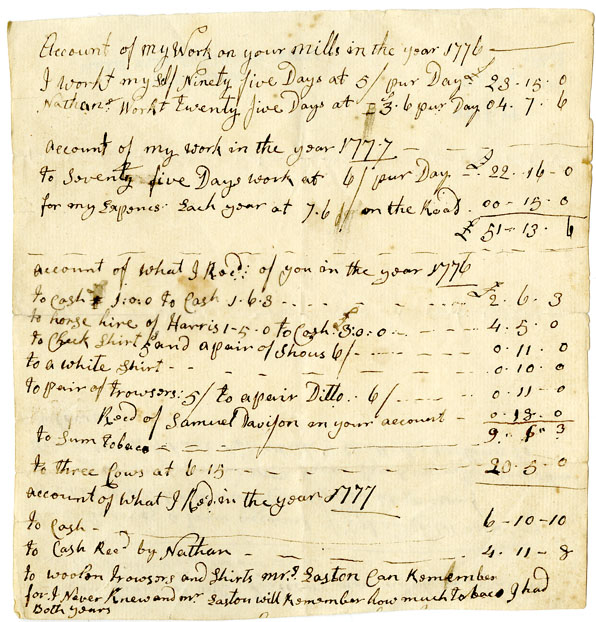 Account of my Work on your mills in the year 1776
I workt my Self Ninety five Days at 5/ pur Day 23 · 15 · 0
Nathan Workt twenty five Days at £ 3 · 6 pur Day 04 · 7 · 6
account of my work in the year 1777
to Seventy five Days work at 6/ pur Day £ 22 · 16 - 0
for my Expences Each year at 7 · 6 on the Road 00 - 15 · 0
£ 51 - 13 · 6
account of what I Recd: of you in the year 1776
to Cash 1:0:0 to Cash 1 · 6 · 3 £ 2 · 6 · 3
to horse hire of Harris 1-5-0 to Cash £ 3:0:0 4 · 5 · 0
to Check Shirt and a pair of Shous 6/ 0 · 11 · 0
to a white Shirt 0 · 10 · 0
to pair of trowsers: 5/ to a pair Ditto 6/ 0 · 11 - 0
Recd of Samuel Davison in your account 0 · 18 · 0
to Sum tobaco 9 · 3
to three Cows at 6-15 20 · 5 · 0
account of what I Recd. in the year 1777
to Cash 6 - 10 - 10
to Cash Recd by Nathan 4 · 11 - 8
to woolen trowsers and Shirts mrs. Easton Can Remember
for I Never Knew and mr Easton will Remember how much tobaco I had
Both years